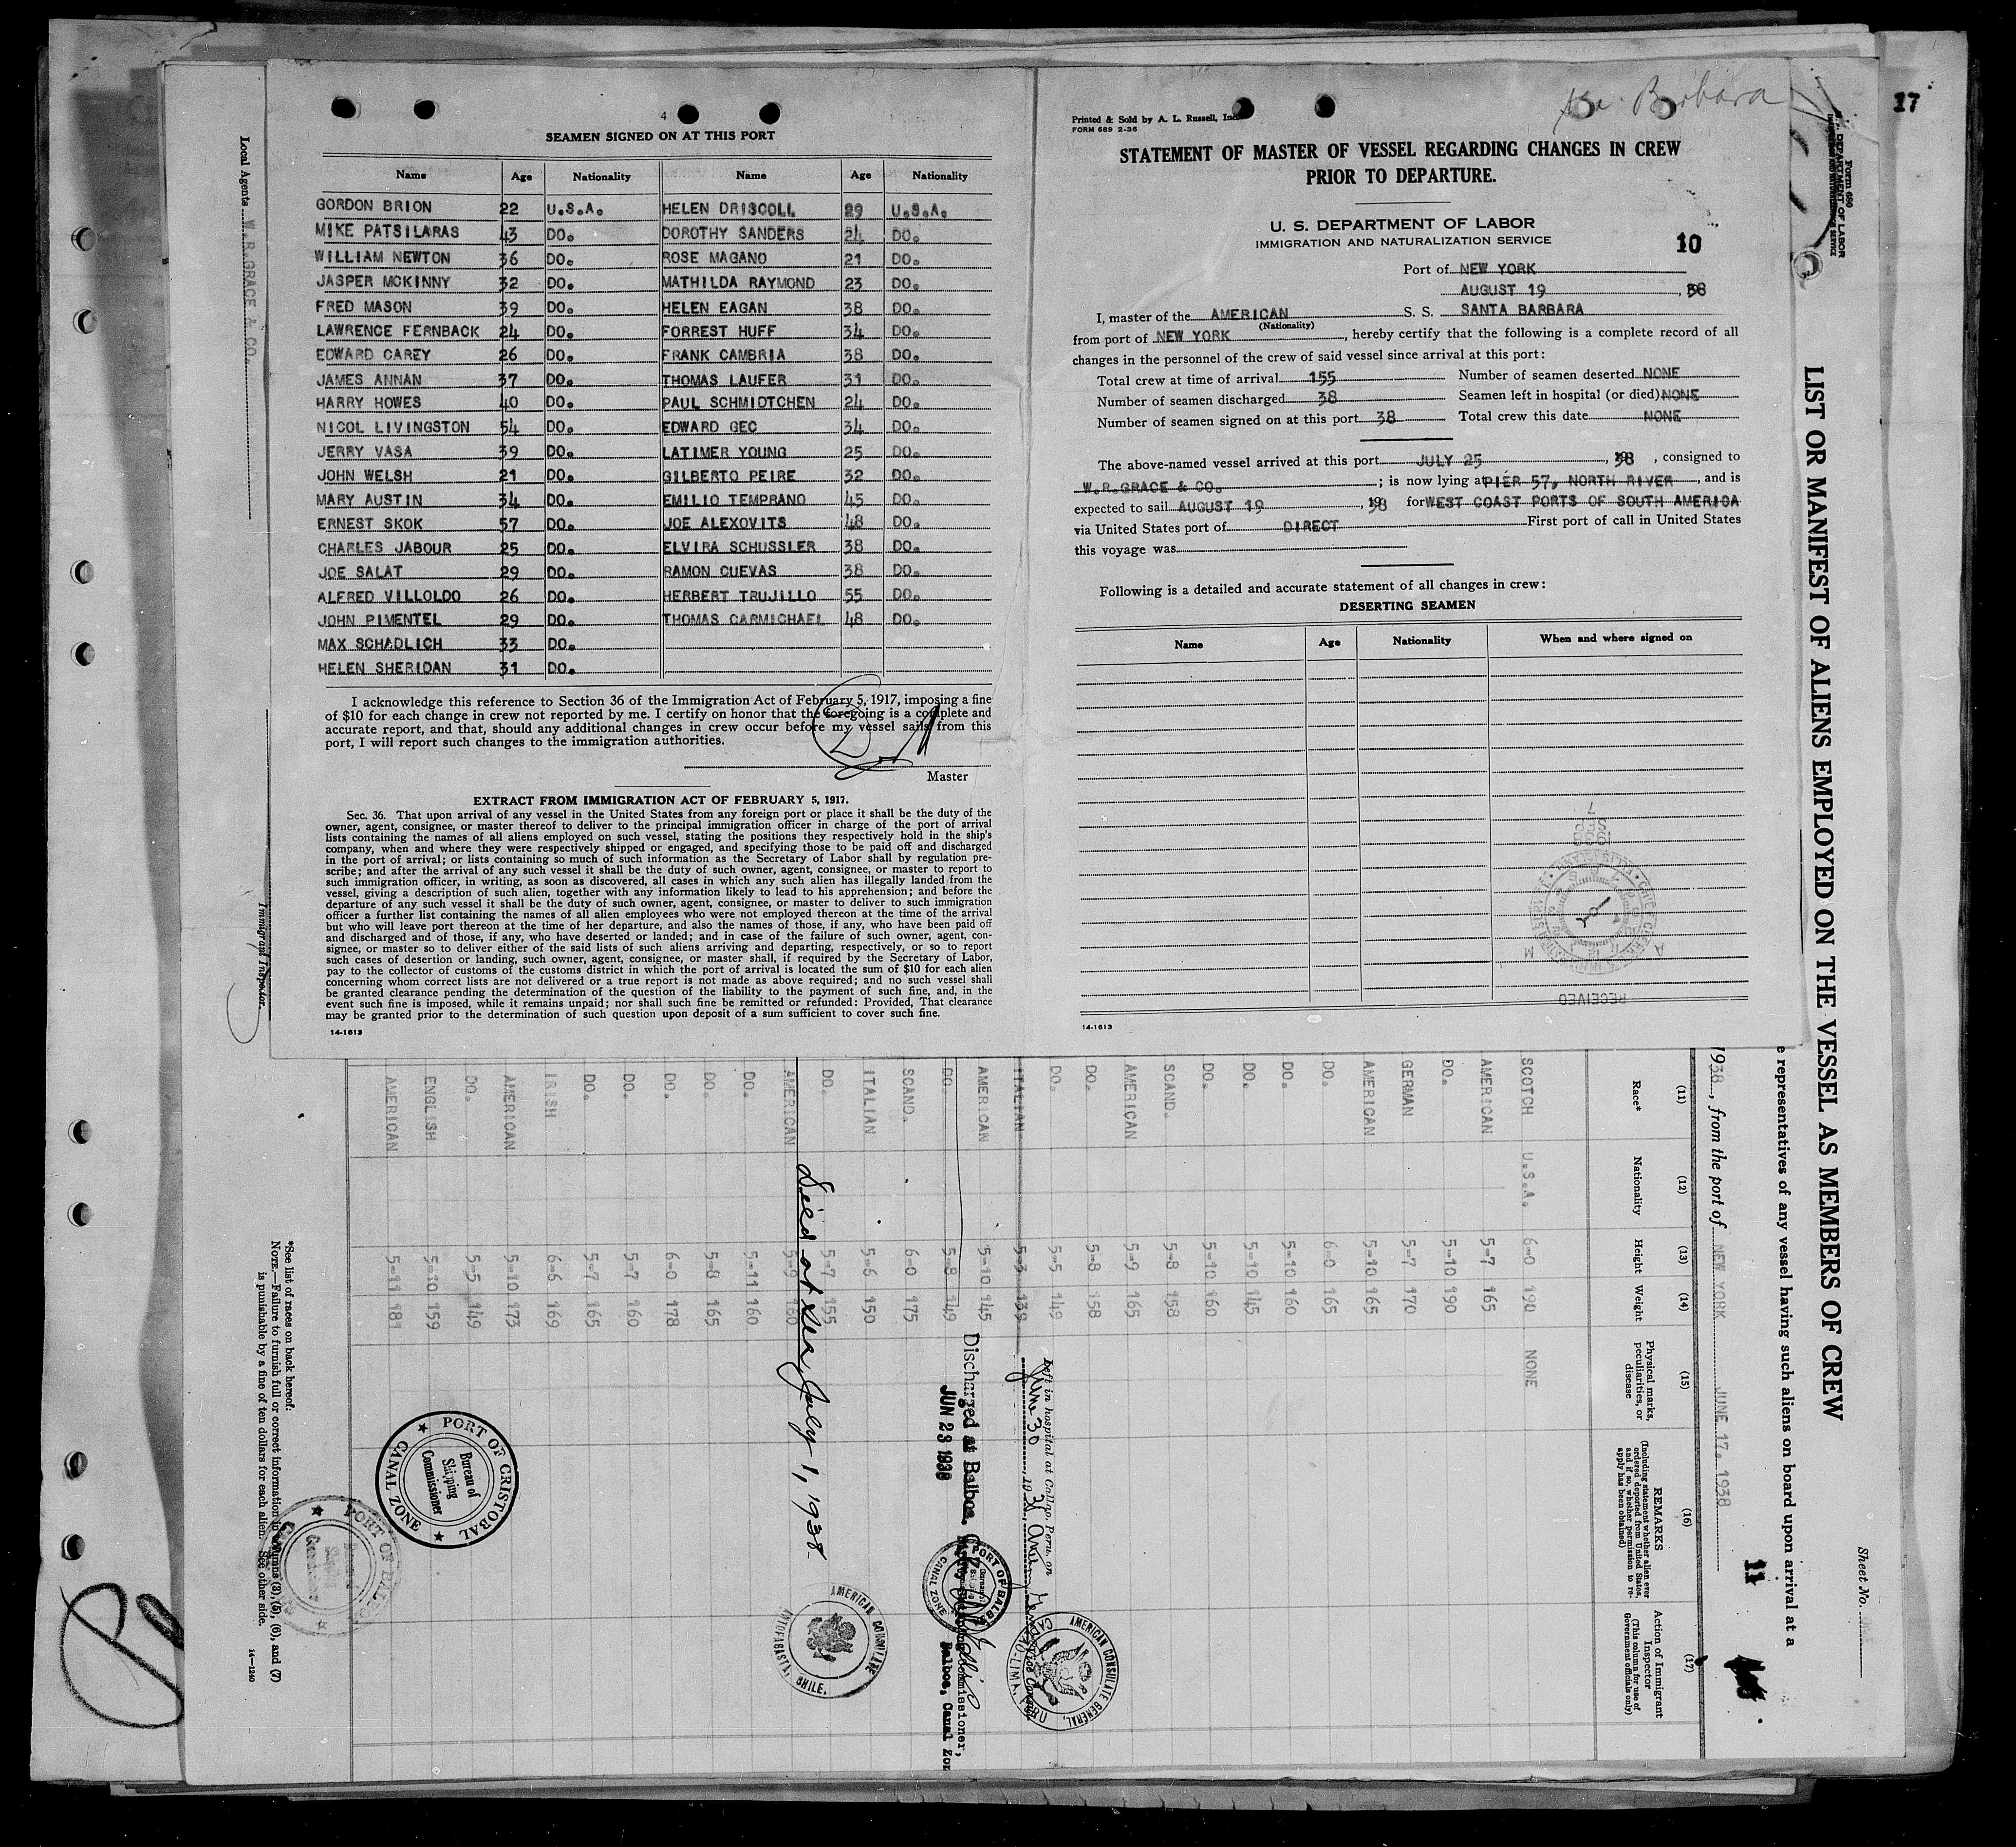 4
SEAMEN SIGNED ON AT THIS PORT
Name Age Nationality Name Age Nationality
GORDON BRION 22 U.S.A. HELEN DRISCOLL 29 U.S.A.
MIKE PATSILARAS 43 DO. DOROTHY SANDERS 24 DO.
WILLIAM NEWTON 36 DO. ROSE MAGANO 21 DO.
JASPER MCKINNY 32 DO. MATHILDA RAYMOND 23 DO.
FRED MASON 39 DO. HELEN EAGAN 38 DO.
LAWRENCE FERNBACK 24 DO. FORREST HUFF 34 DO.
EDWARD CAREY 26 DO. FRANK CAMBRIA 38 DO.
JAMES ANNAN 37 DO. THOMAS LAUFER 31 DO.
HARRY HOWES 40 DO. PAUL SCHMIDTCHEN 24 DO.
NICOL LIVINGSTON 54 DO. EDWARD GEC 34 DO.
JERRY VASA 39 DO. LATIMER YOUNG 25 DO.
JOHN WELSH 21 DO. GILBERTO PEIRE 32 DO.
MARY AUSTIN 34 DO. EMILIO TEMPRANO 45 DO.
ERNEST SKOK 57 DO. JOE ALEXOVITS 48 DO.
CHARLES JABOUR 25 DO. ELVIRA SCHUSSLER 38 DO.
JOE SALAT 29 DO. RAMON CUEVAS 38 DO.
ALFRED VILLOLDO 26 DO. HERBERT TRUJILLO 55 DO.
JOHN PIMENTEL 29 DO. THOMAS CARMICHAEL 48 DO.
MAX SCHADLICH 33 DO.
HELEN SHERIDAN 31 DO.
I acknowledge this reference to Section 36 of the Immigration Act of February 5, 1917, imposing a fine
of $10 for each change in crew not reported by me. I certify on honor that the foregoing is a complete and
accurate report, and that, should any additional changes in crew occur before my vessel sails from this
port, I will report such changes to the immigration authorities.
Master
EXTRACT FROM IMMIGRATION ACT OF FEBRUARY 5, 1917.
Sec. 36. That upon arrival of any vessel in the United States from any foreign port or place it shall be the duty of the
owner, agent, consignee, or master thereof to deliver to the principal immigration officer in charge of the port of arrival
lists containing the names of all aliens employed on such vessel, stating the positions they respectively hold in the ship's
company, when and where they were respectively shipped or engaged, and specifying those to be paid off and discharged
in the port of arrival; or lists containing so much of such information as the Secretary of Labor shall by regulation pre-
scribe; and after the arrival of any such vessel it shall be the duty of such owner, agent, consignee, or master to report to
such immigration officer, in writing, as soon as discovered, all cases in which any such alien has illegally landed from the
vessel, giving a description of such alien, together with any information likely to lead to his apprehension; and before the
departure of any such vessel it shall be the duty of such owner, agent, consignee, or master to deliver to such immigration
officer a further list containing the names of all alien employees who were not employed thereon at the time of the arrival
but who will leave port thereon at the time of her departure, and also the names of those, if any, who have been paid off
and discharged and of those, if any, who have deserted or landed; and in case of the failure of such owner, agent, con-
signee, or master so to deliver either of the said lists of such aliens arriving and departing, respectively, or so to report
such cases of desertion or landing, such owner, agent, consignee, or master shall, if required by the Secretary of Labor,
pay to the collector of customs of the customs district in which the port of arrival is located the sum of $10 for each alien
concerning whom correct lists are not delivered or a true report is not made as above required; and no such vessel shall
be granted clearance pending the determination of the question of the liability to the payment of such fine, and, in the
event such fine is imposed, while it remains unpaid; nor shall such fine be remitted or refunded: Provided, That clearance
may be granted prior to the determination of such question upon deposit of a sum sufficient to cover such fine.
14-1613
Barbara
Printed & Sold by A. L. Russell, Inc.
FORM 689 2-36
STATEMENT OF MASTER OF VESSEL REGARDING CHANGES IN CREW
PRIOR TO DEPARTURE.
U. S. DEPARTMENT OF LABOR
IMMIGRATION AND NATURALIZATION SERVICE
10
Port of NEW YORK
AUGUST 19, 38
I, master of the AMERICAN S. S. SANTA BARBARA
(Nationality)
from port of NEW YORK, hereby certify that the following is a complete record of all
changes in the personnel of the crew of said vessel since arrival at this port:
Total crew at time of arrival 155 Number of seamen deserted NONE
Number of seamen discharged 38 Seamen left in hospital (or died) NONE
Number of seamen signed on at this port 38 Total crew this date NONE
The above-named vessel arrived at this port JULY 25, 38, consigned to
W.R.GRACE & CO.; is now lying at PIER 57, NORTH RIVER, and is
expected to sail AUGUST 19, 38 for WEST COAST PORTS OF SOUTH AMERICA
via United States port of DIRECT First port of call in United States
this voyage was
Following is a detailed and accurate statement of all changes in crew:
DESERTING SEAMEN
Name Age Nationality When and where signed on
RECEIVED
14-1613
17
Form 680
U. S. DEPARTMENT OF LABOR
LIST OR MANIFEST OF ALIENS EMPLOYED ON THE VESSEL AS MEMBERS OF CREW
Sheet No.
e representatives of any vessel having such aliens on board upon arrival at a
1938, from the port of NEW YORK JUNE 17, 1938
11
(11) (12) (13) (14) (15) (16) (17)
Race* Nationality Height Weight Physical marks, peculiarities, or disease
REMARKS
(Including statement whether alien ever ordered deported from United States, and if so, whether permission to re-apply has been obtained)
Action of Immigrant Inspector
(This column for use of Government officials only)
SCOTCH U.S.A. 6-0 190 NONE
AMERICAN 5-7 165
DO. 5-10 190
GERMAN 5-7 170
AMERICAN 5-10 165
DO. 6-0 165
DO. 5-10 160
DO. 5-10 145
DO. 5-10 160
SCAND. 5-8 158
AMERICAN 5-9 165
DO. 5-8 158
DO. 5-5 149
ITALIAN 5-3 139
Left in hospital at Callao, Peru, on
June 30, 1938
AMERICAN CONSULATE GENERAL, CALLAO-LIMA, PERU
AMERICAN 5-10 145
DO. 5-8 149
Discharged at Balboa,
JUN 23 1938
Deputy Shipping Commissioner,
Balboa, Canal Zon
PORT OF BALBOA CANAL ZONE
SCAND. 6-0 175
ITALIAN 5-6 150
DO. 5-7 155
AMERICAN 5-9 160
Died at sea, July 1, 1938
AMERICAN CONSULATE ANTOFAGASTA, CHILE.
DO. 5-11 160
DO. 5-8 165
DO. 6-0 178
DO. 5-7 160
DO. 5-7 165
IRISH 6-6 169
AMERICAN 5-10 173
DO. 5-5 149
ENGLISH 5-10 159
AMERICAN 5-11 181
PORT OF CRISTOBAL CANAL ZONE
Bureau of
Shipping
Commissioner
*See list of races on back hereof.
NOTE.—Failure to furnish full or correct information in columns (3), (5), (6), and (7)
is punishable by a fine of ten dollars for each alien. See other side.
14-1240
Local Agents W.R.GRACE & CO.
Immigrant Inspector.